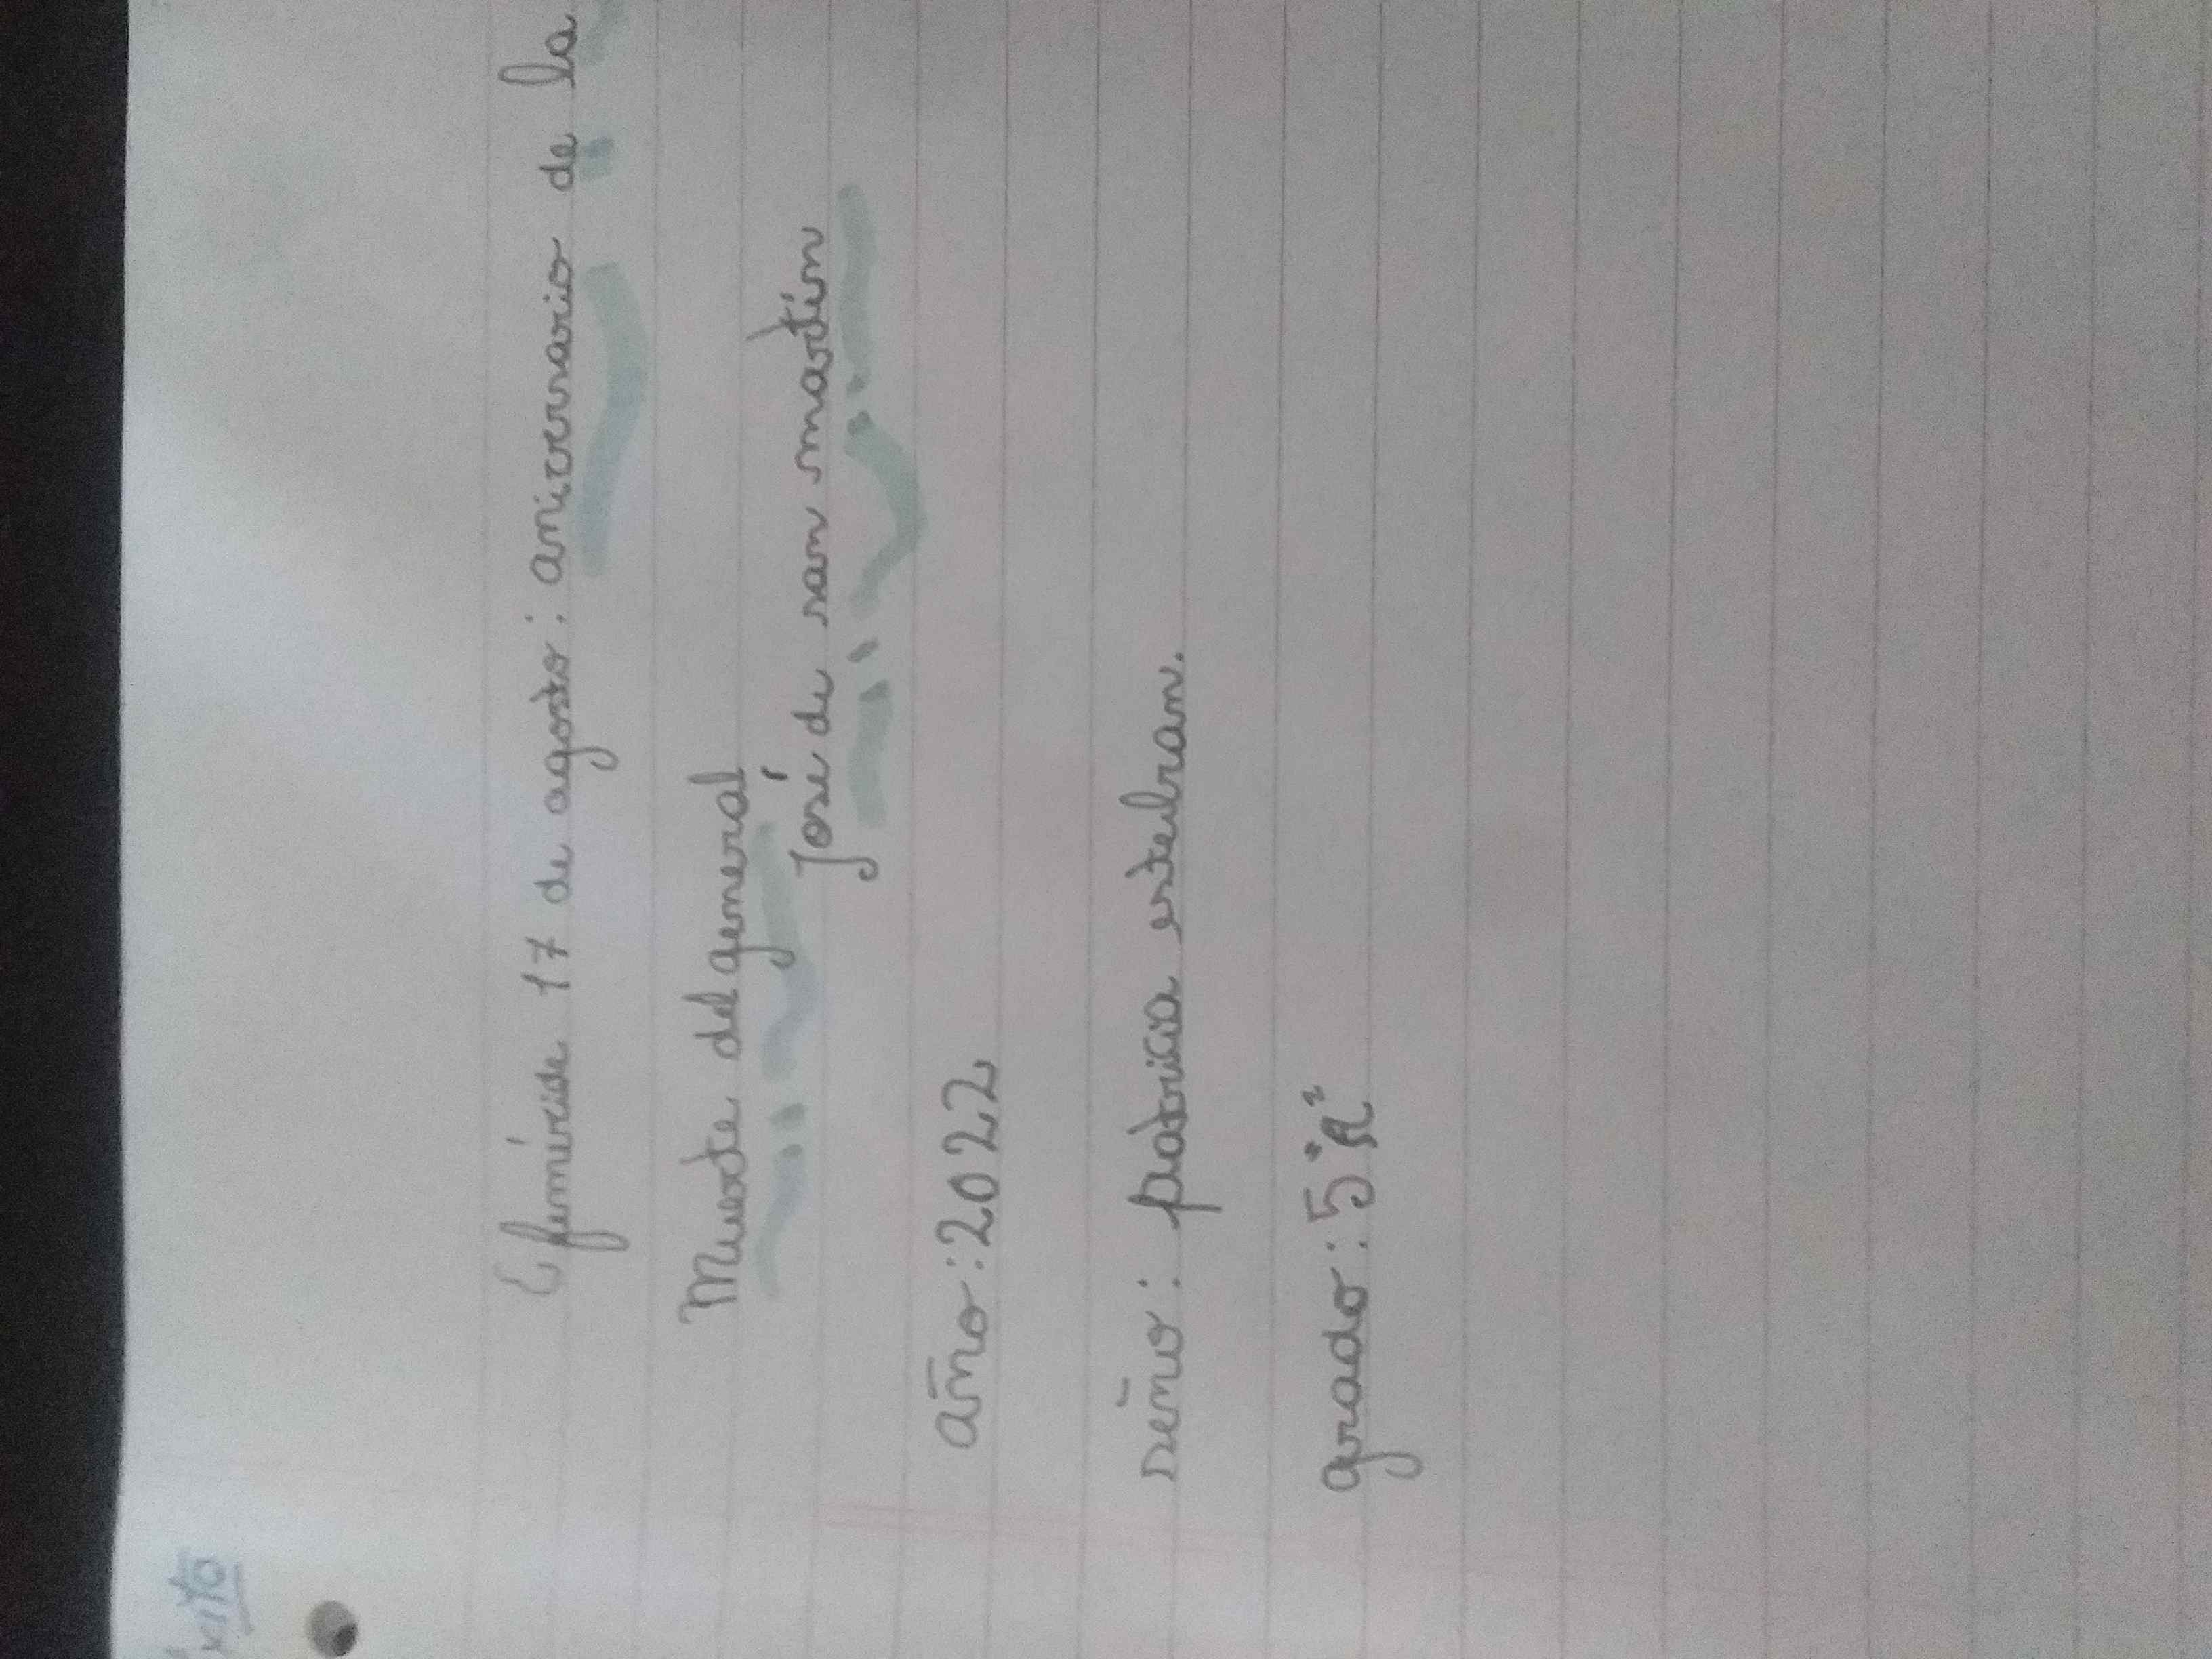 Efeméride 17 de agosto: aniversario de la
Muerte del general
José de san martín
año: 2022
seño: patricia estebran.
grado: 5